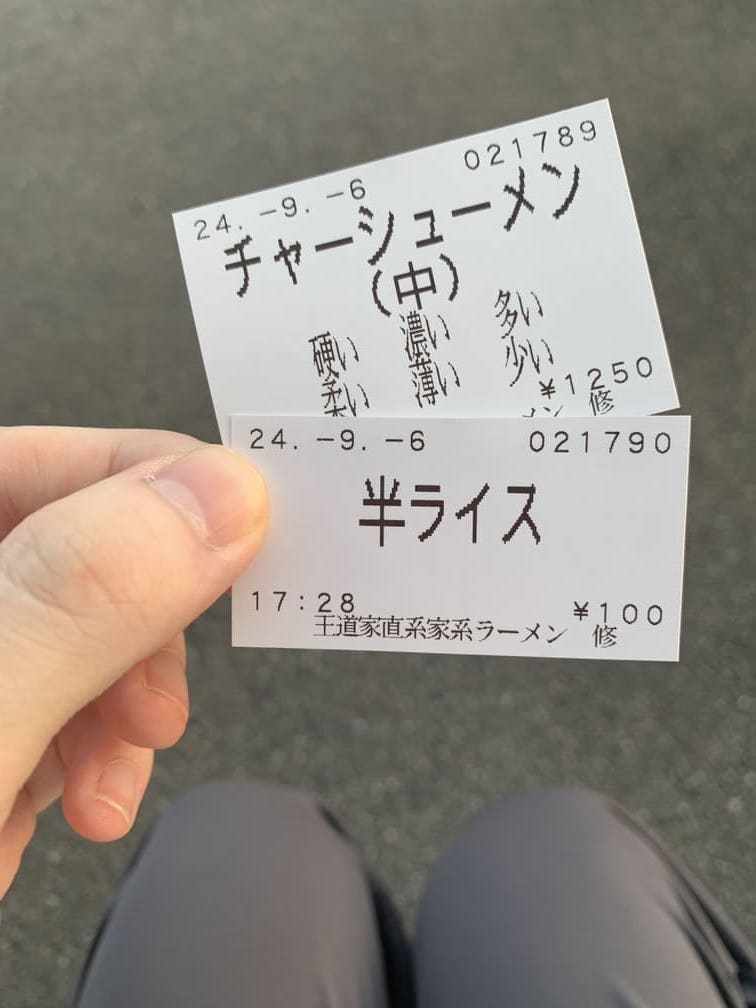 24. -9. -6 021789
チャーシューメン
(中)
硬い 濃い 多い
柔い 薄い 少い
¥1250
メン 修
24. -9. -6 021790
半ライス
17:28 ¥100
王道家直系家系ラーメン 修